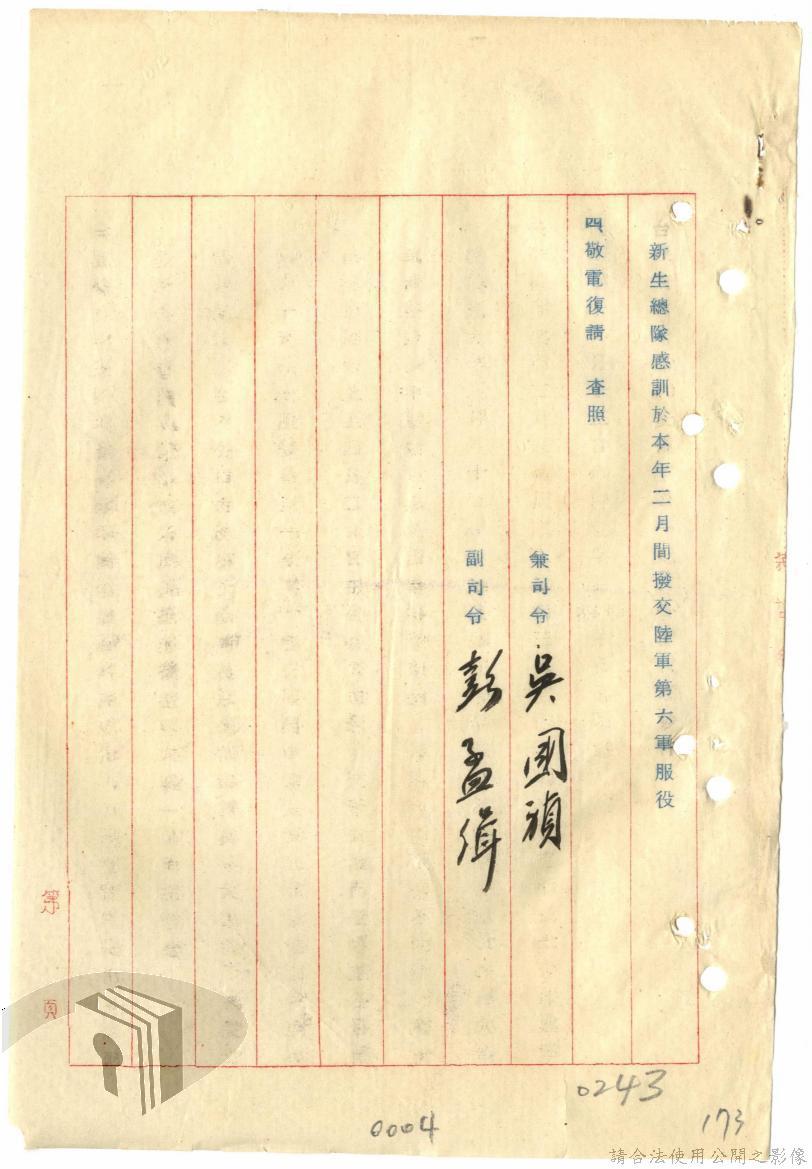 新生總隊感訓於本年二月間撥交陸軍第六軍服役
四、敬電復請 查照
兼司令 吳國禎
副司令 彭孟緝
第 頁
0243
0004
173
請合法使用公開之影像